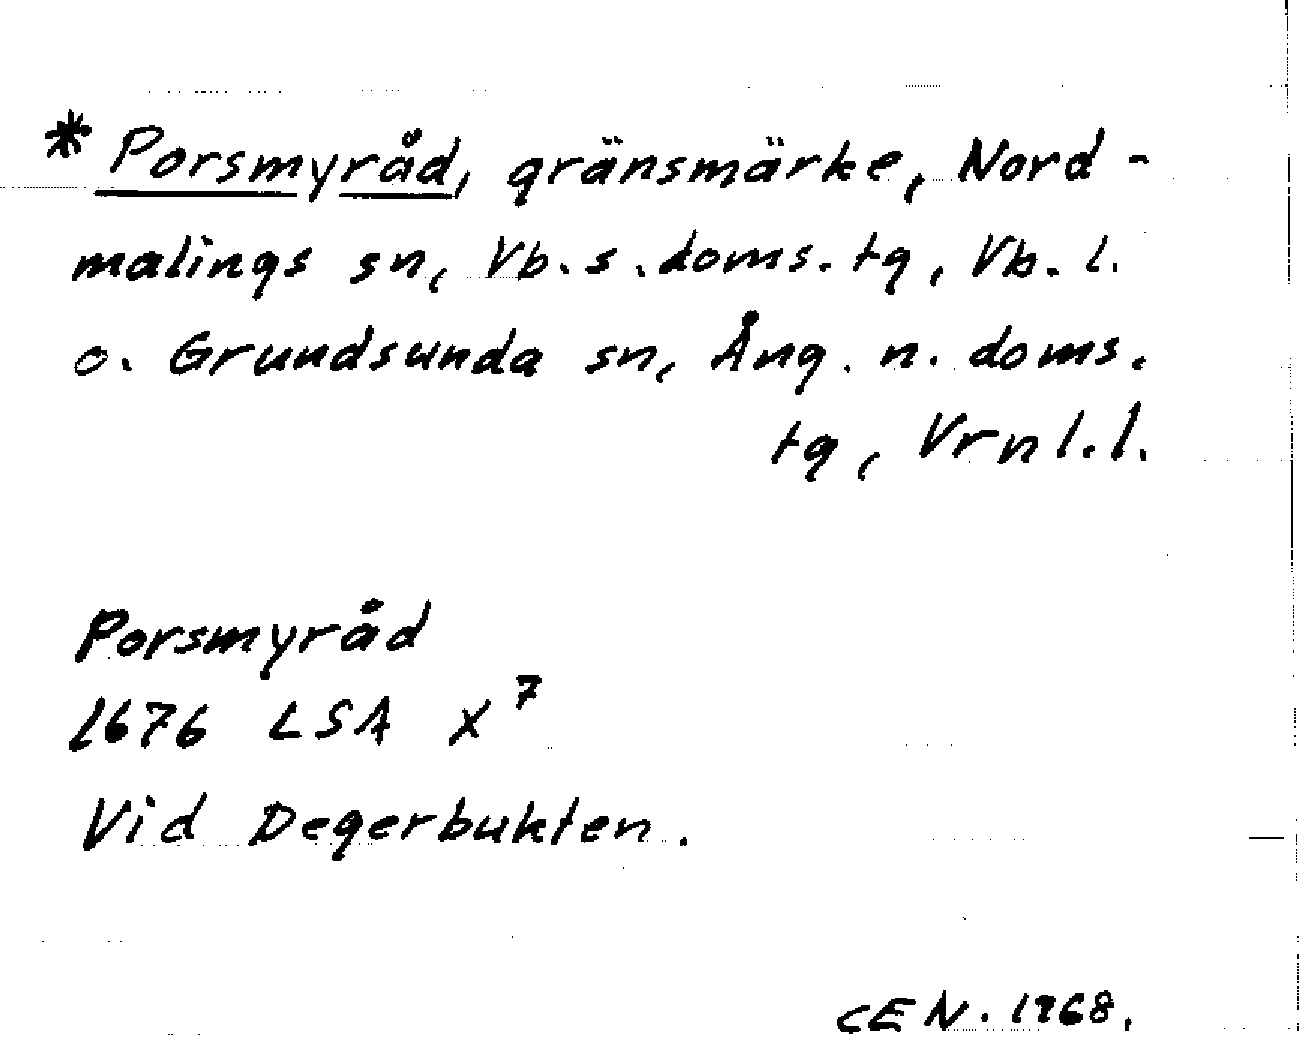 * Porsmyråd, gränsmärke, Nord-
malings sn, Vb. s. doms. tg, Vb. l.
o. Grundsunda sn, Ång. n. doms.
tg, Vrnl. l.
Porsmyråd
1676 LSA X⁷
Vid Degerbukten.
CEN. 1968.